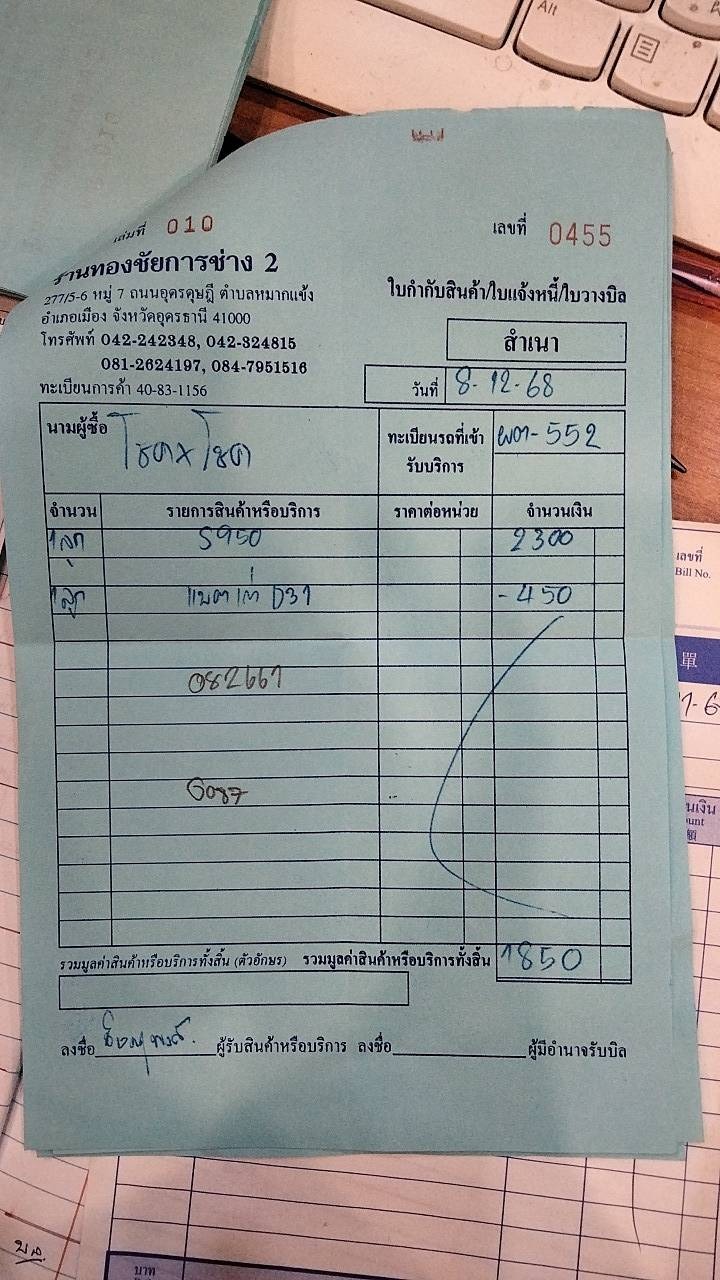 Alt
เล่มที่ 010
เลขที่ 0455
ร้านทองชัยการช่าง 2
277/5-6 หมู่ 7 ถนนอุดรดุษฎี ตำบลหมากแข้ง
อำเภอเมือง จังหวัดอุดรธานี 41000
โทรศัพท์ 042-242348, 042-324815
081-2624197, 084-7951516
ทะเบียนการค้า 40-83-1156
ใบกำกับสินค้า/ใบแจ้งหนี้/ใบวางบิล
สำเนา
วันที่ 8-12-68
นามผู้ซื้อ โชคxโชค
ทะเบียนรถที่เข้ารับบริการ 552
จำนวน รายการสินค้าหรือบริการ ราคาต่อหน่วย จำนวนเงิน
1ลูก S950 2300
1ลูก แบตเก่า D31 -450
082667
G087
รวมมูลค่าสินค้าหรือบริการทั้งสิ้น (ตัวอักษร) รวมมูลค่าสินค้าหรือบริการทั้งสิ้น 1850
ลงชื่อ ผู้รับสินค้าหรือบริการ ลงชื่อ ผู้มีอำนาจรับบิล
เลขที่
Bill No.
單
บาท